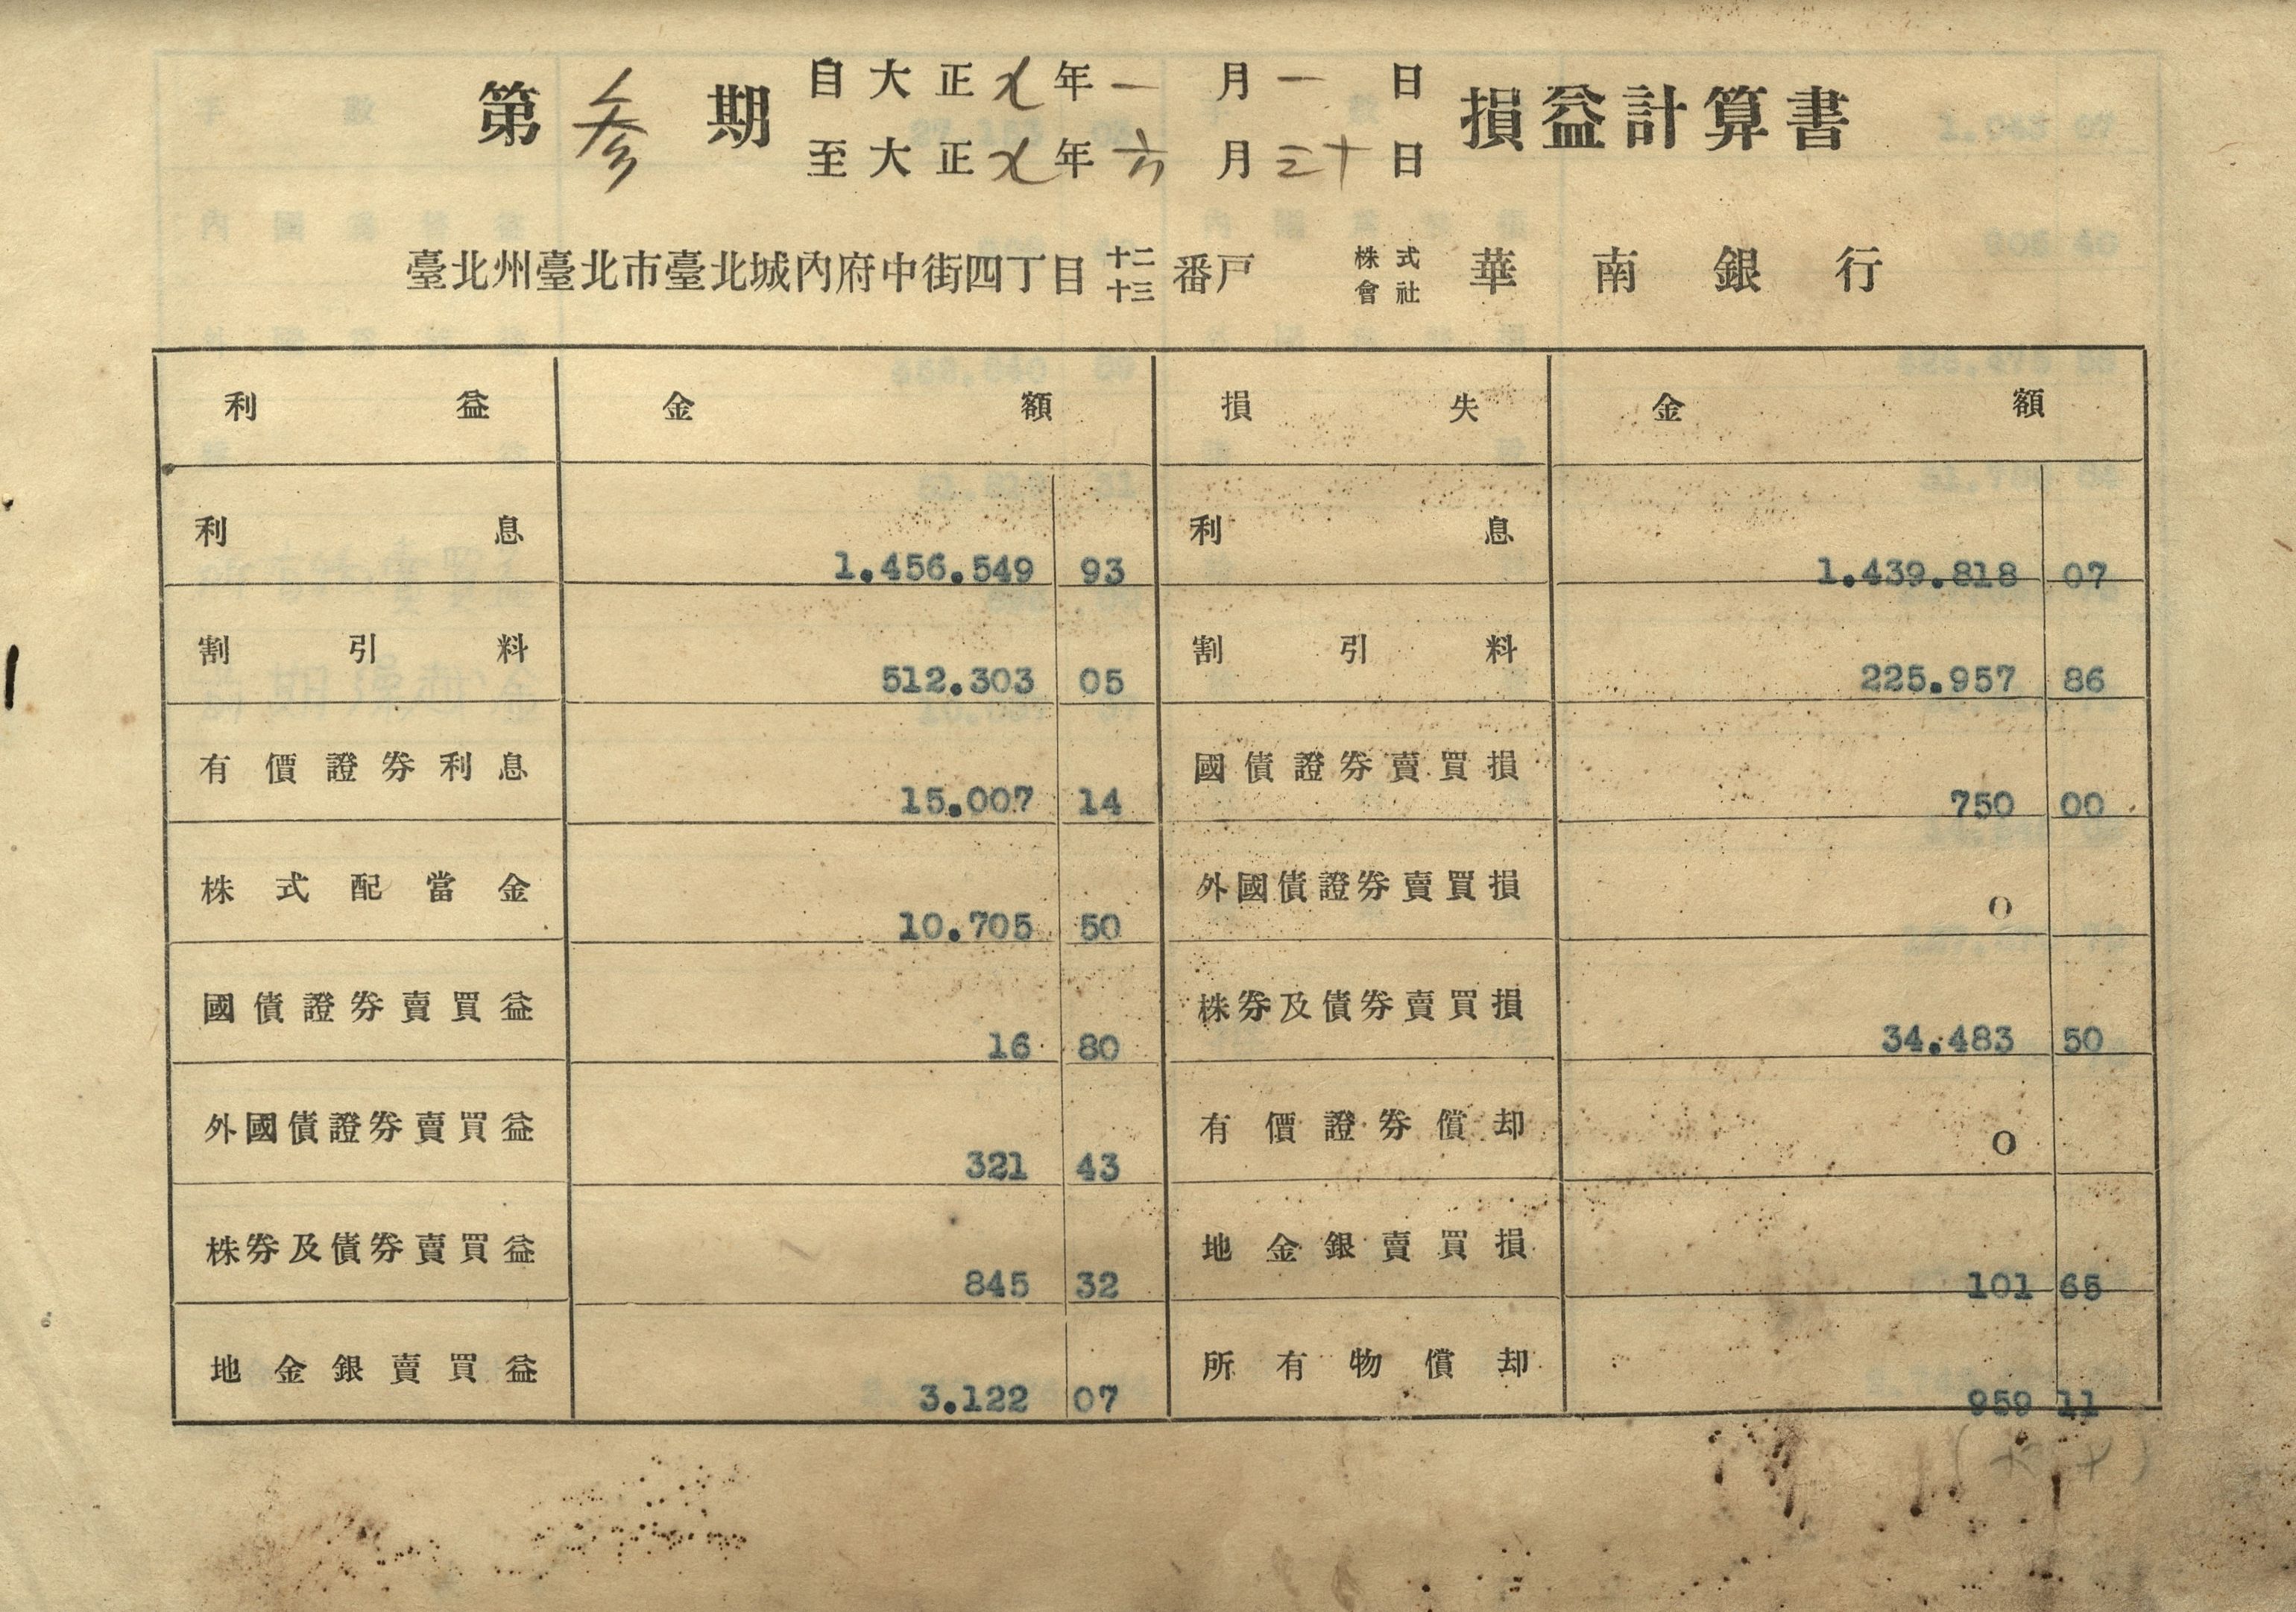 第參期 自大正九年一月一日 損益計算書
至大正九年六月三十日
臺北州臺北市臺北城內府中街四丁目十二十三番戶 株式會社 華南銀行
利益 金額 損失 金額
利息 1.456.549 93 利息 1.439.818 07
割引料 512.303 05 割引料 225.957 86
有價證券利息 15.007 14 國債證券賣買損 750 00
株式配當金 10.705 50 外國債證券賣買損 0
國債證券賣買益 16 80 株券及債券賣買損 34.483 50
外國債證券賣買益 321 43 有價證券償却 0
株券及債券賣買益 845 32 地金銀賣買損 101 65
地金銀賣買益 3.122 07 所有物償却 959 11